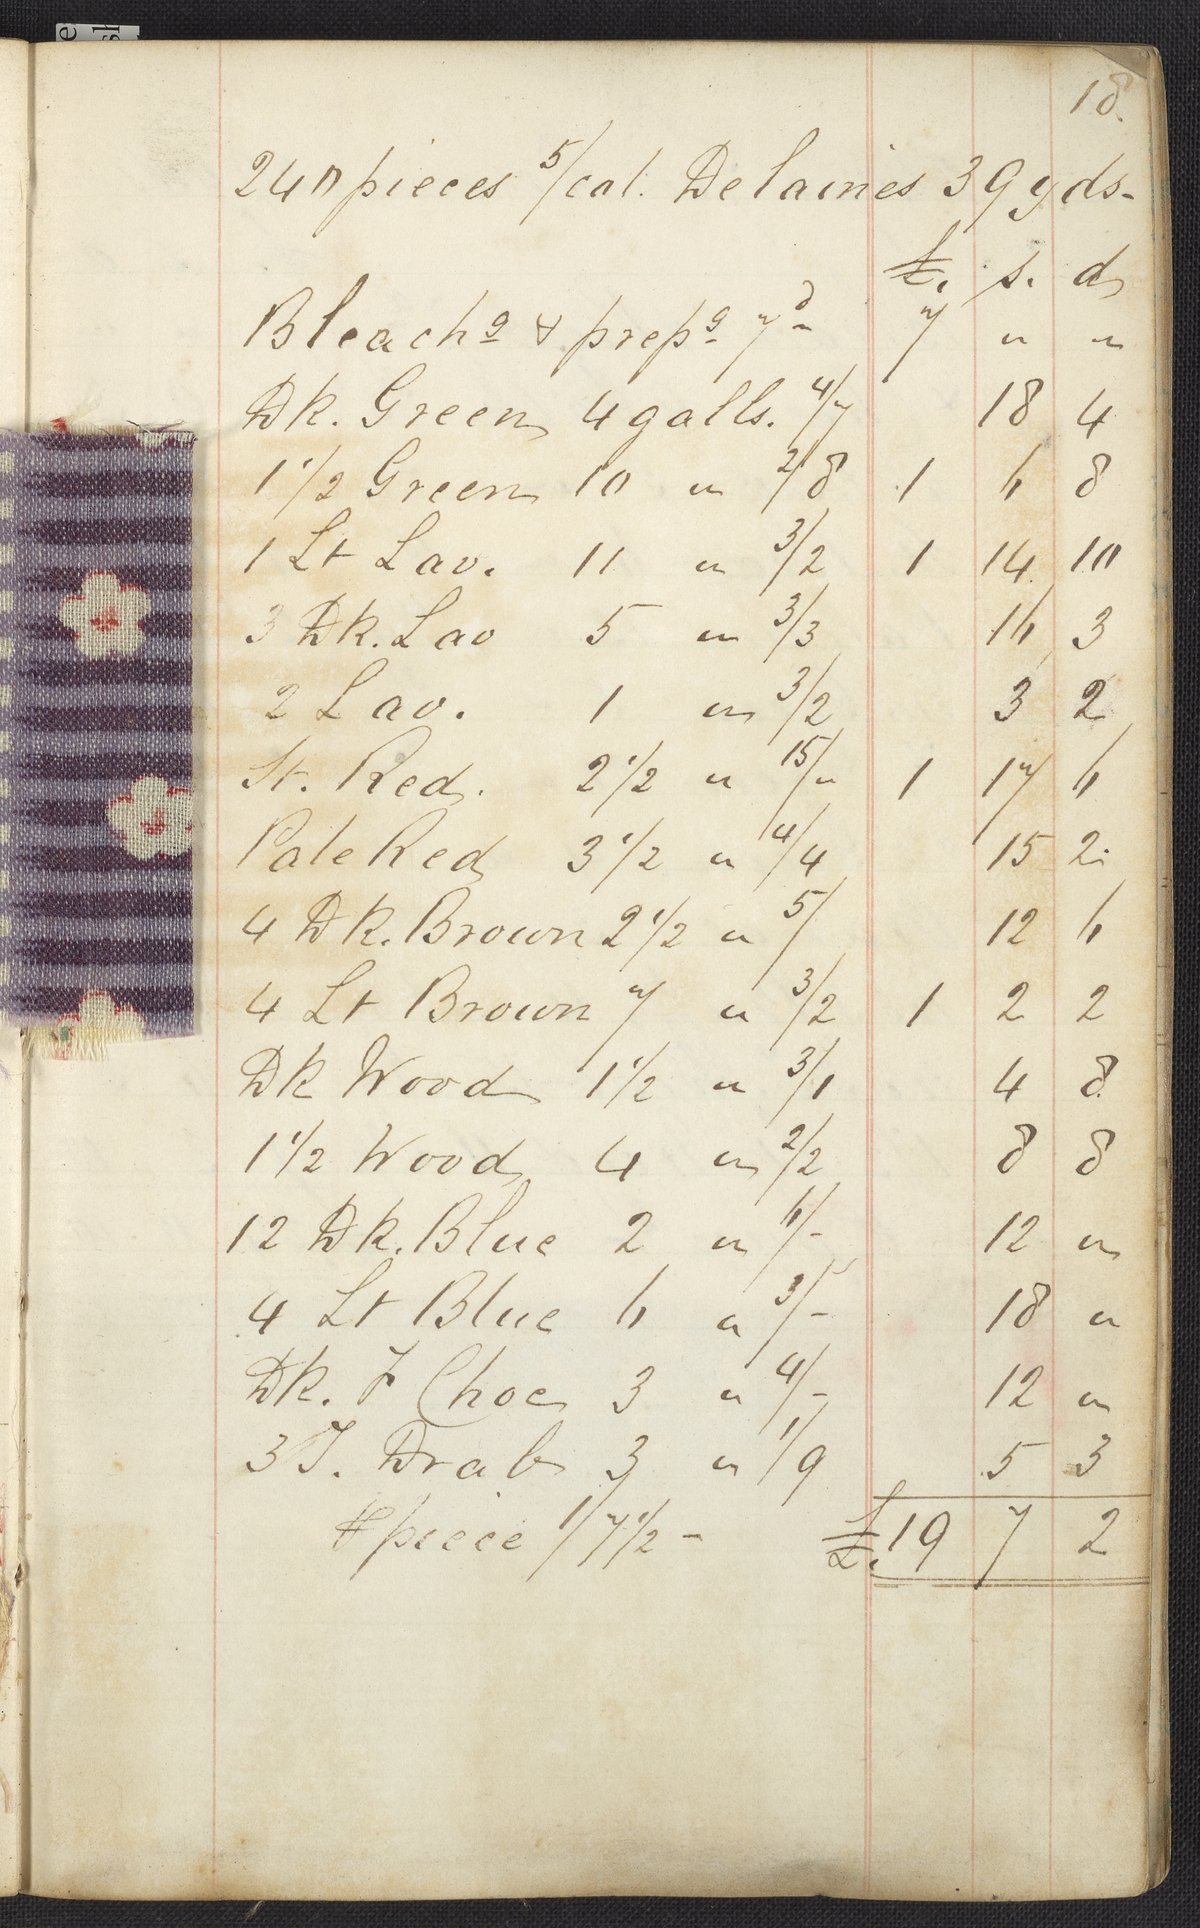 18.
240 pieces 5/col. Delaines 39 yds-
£. s. d
Bleachg & prepg 7d 7 " "
Dk. Green 4 galls. 4/7 18 4
1 1/2 Green 10 " 2/8 1 6 8
1 Lt Lav. 11 " 3/2 1 14 10
3 Dk. Lav 5 " 3/3 16 3
2 Lav. 1 " 3/2 3 2
St. Red. 2 1/2 " 15/" 1 17 6
Pale Red 3 1/2 " 4/4 15 2
4 Dk. Brown 2 1/2 " 5/ 12 6
4 Lt Brown 7 " 3/2 1 2 2
Dk Wood 1 1/2 " 3/1 4 8
1 1/2 Wood 4 " 2/2 8 8
12 Dk. Blue 2 " 6/- 12 "
4 Lt Blue 6 " 3/- 18 "
Dk. F Choc 3 " 4/- 12 "
3 F. Drab 3 " 1/9 5 3
⅌ piece 1/7 1/2 - £. 19 7 2